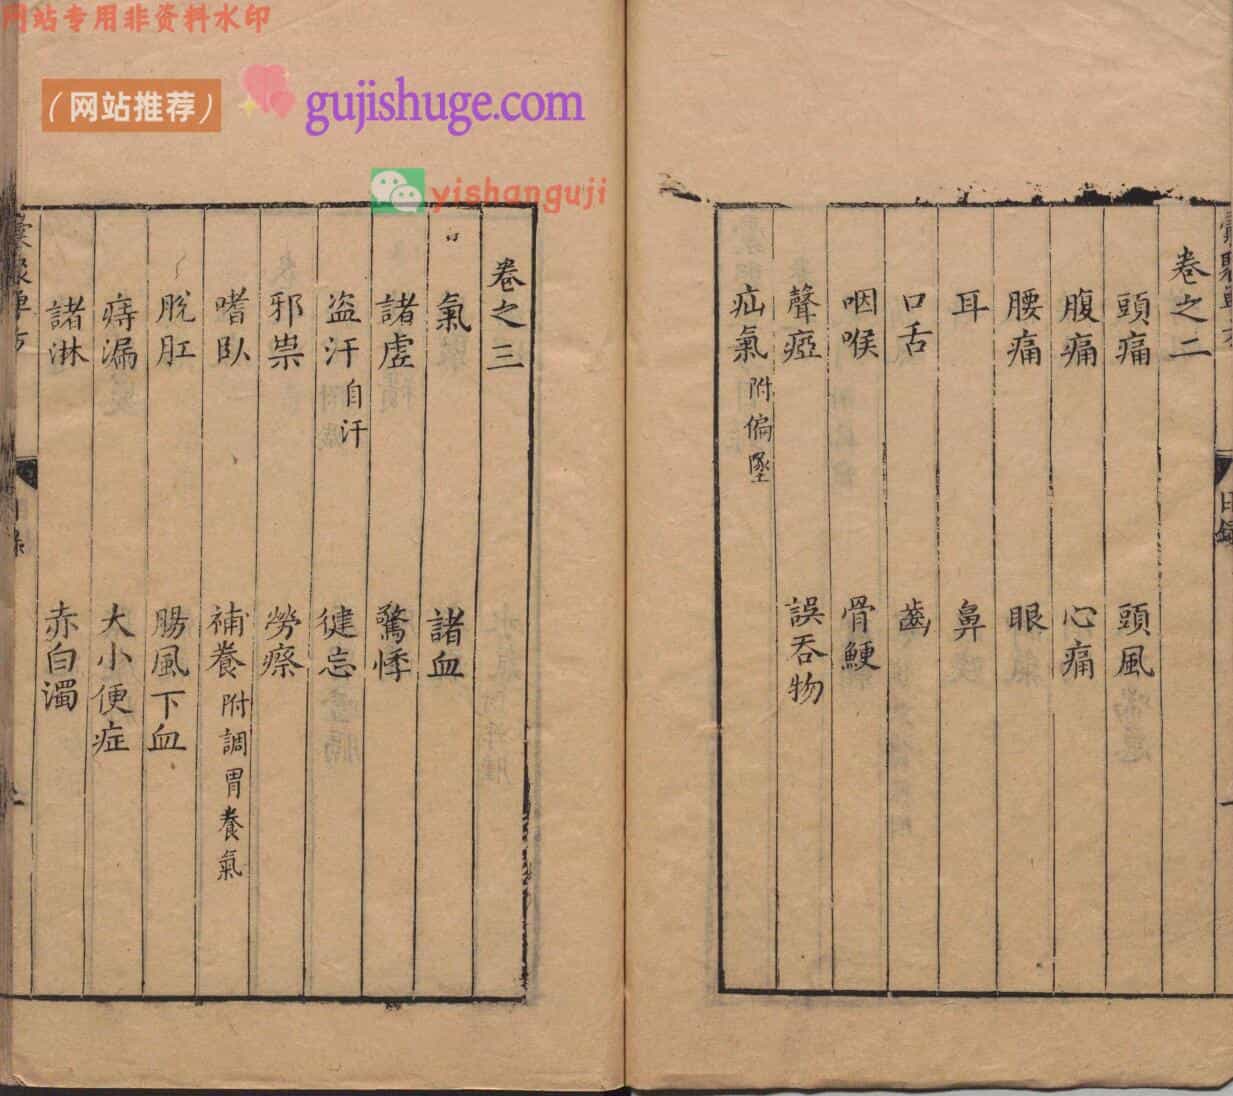 网站专用非资料水印
（网站推荐）
gujishuge.com
yishanguji
卷之二
頭痛 頭風
腹痛 心痛
腰痛 眼
耳 鼻
口舌 齒
咽喉 骨鯁
聲瘂 誤吞物
疝氣 附偏墜
目錄
卷之三
氣 諸血
諸虛 驚悸
盗汗 自汗 健忘
邪祟 勞瘵
嗜臥 補養 附調胃養氣
脫肛 腸風下血
痔漏 大小便症
諸淋 赤白濁